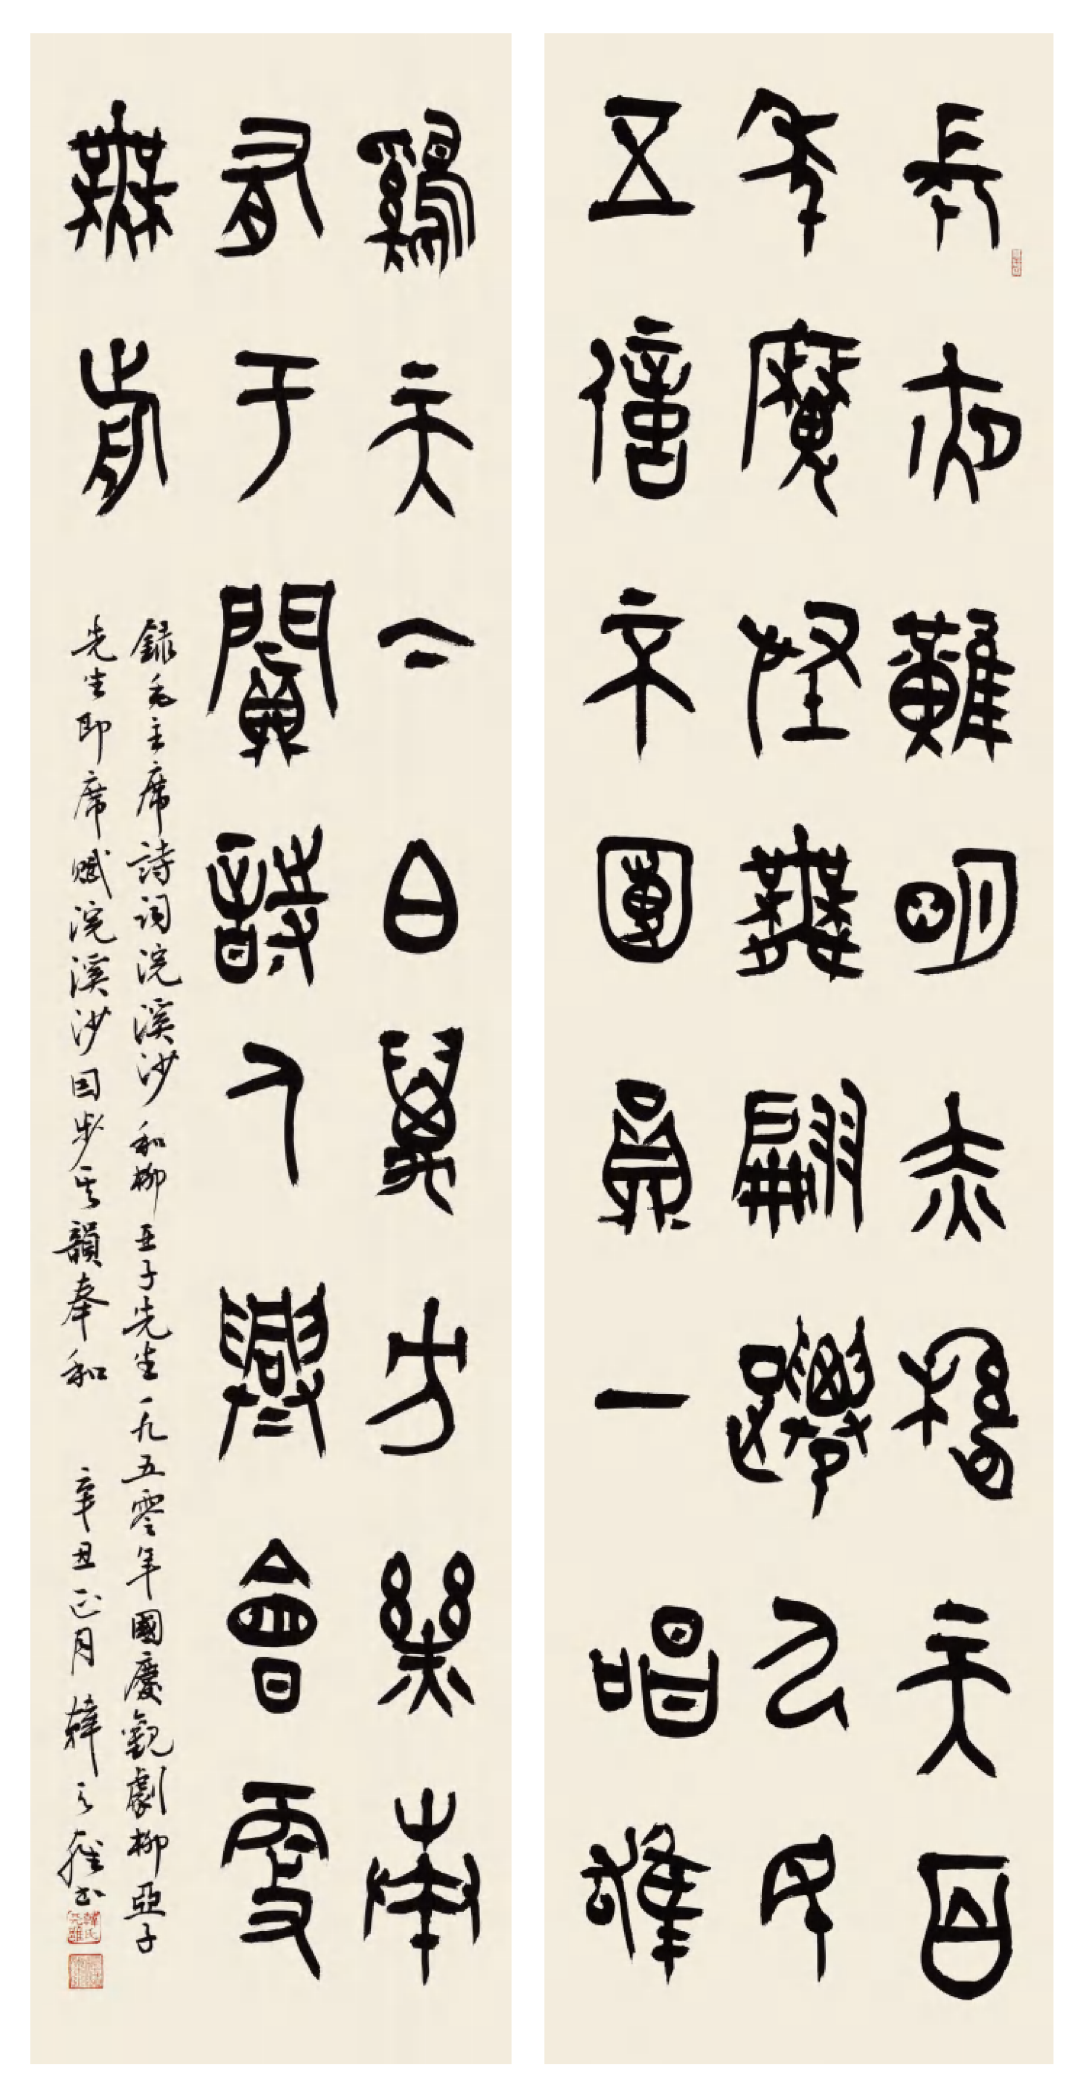 長夜難明赤縣天百
年魔怪舞翩躚人民
五億不團員一唱雄
鷄天下白萬方樂奏
有于闐詩人興會更
無前
錄毛主席詩詞浣溪沙和柳亚子先生一九五零年國慶觀劇柳亞子
先生即席賦浣溪沙因步其韻奉和 辛丑正月韓天雍书